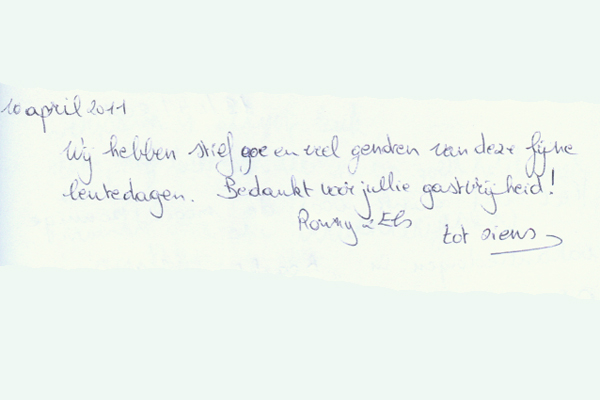 10 april 2011
Wij hebben stief goe en veel genoten van deze fijne
lentedagen. Bedankt voor jullie gastvrijheid!
Ronny & Els
tot siens